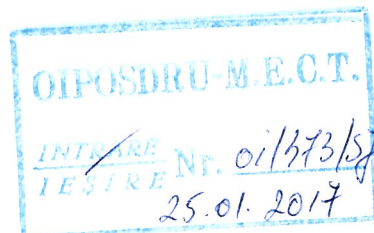 OIPOSDRU-M.E.C.T.
INTRARE
IEȘIRE Nr.
25.01.2017